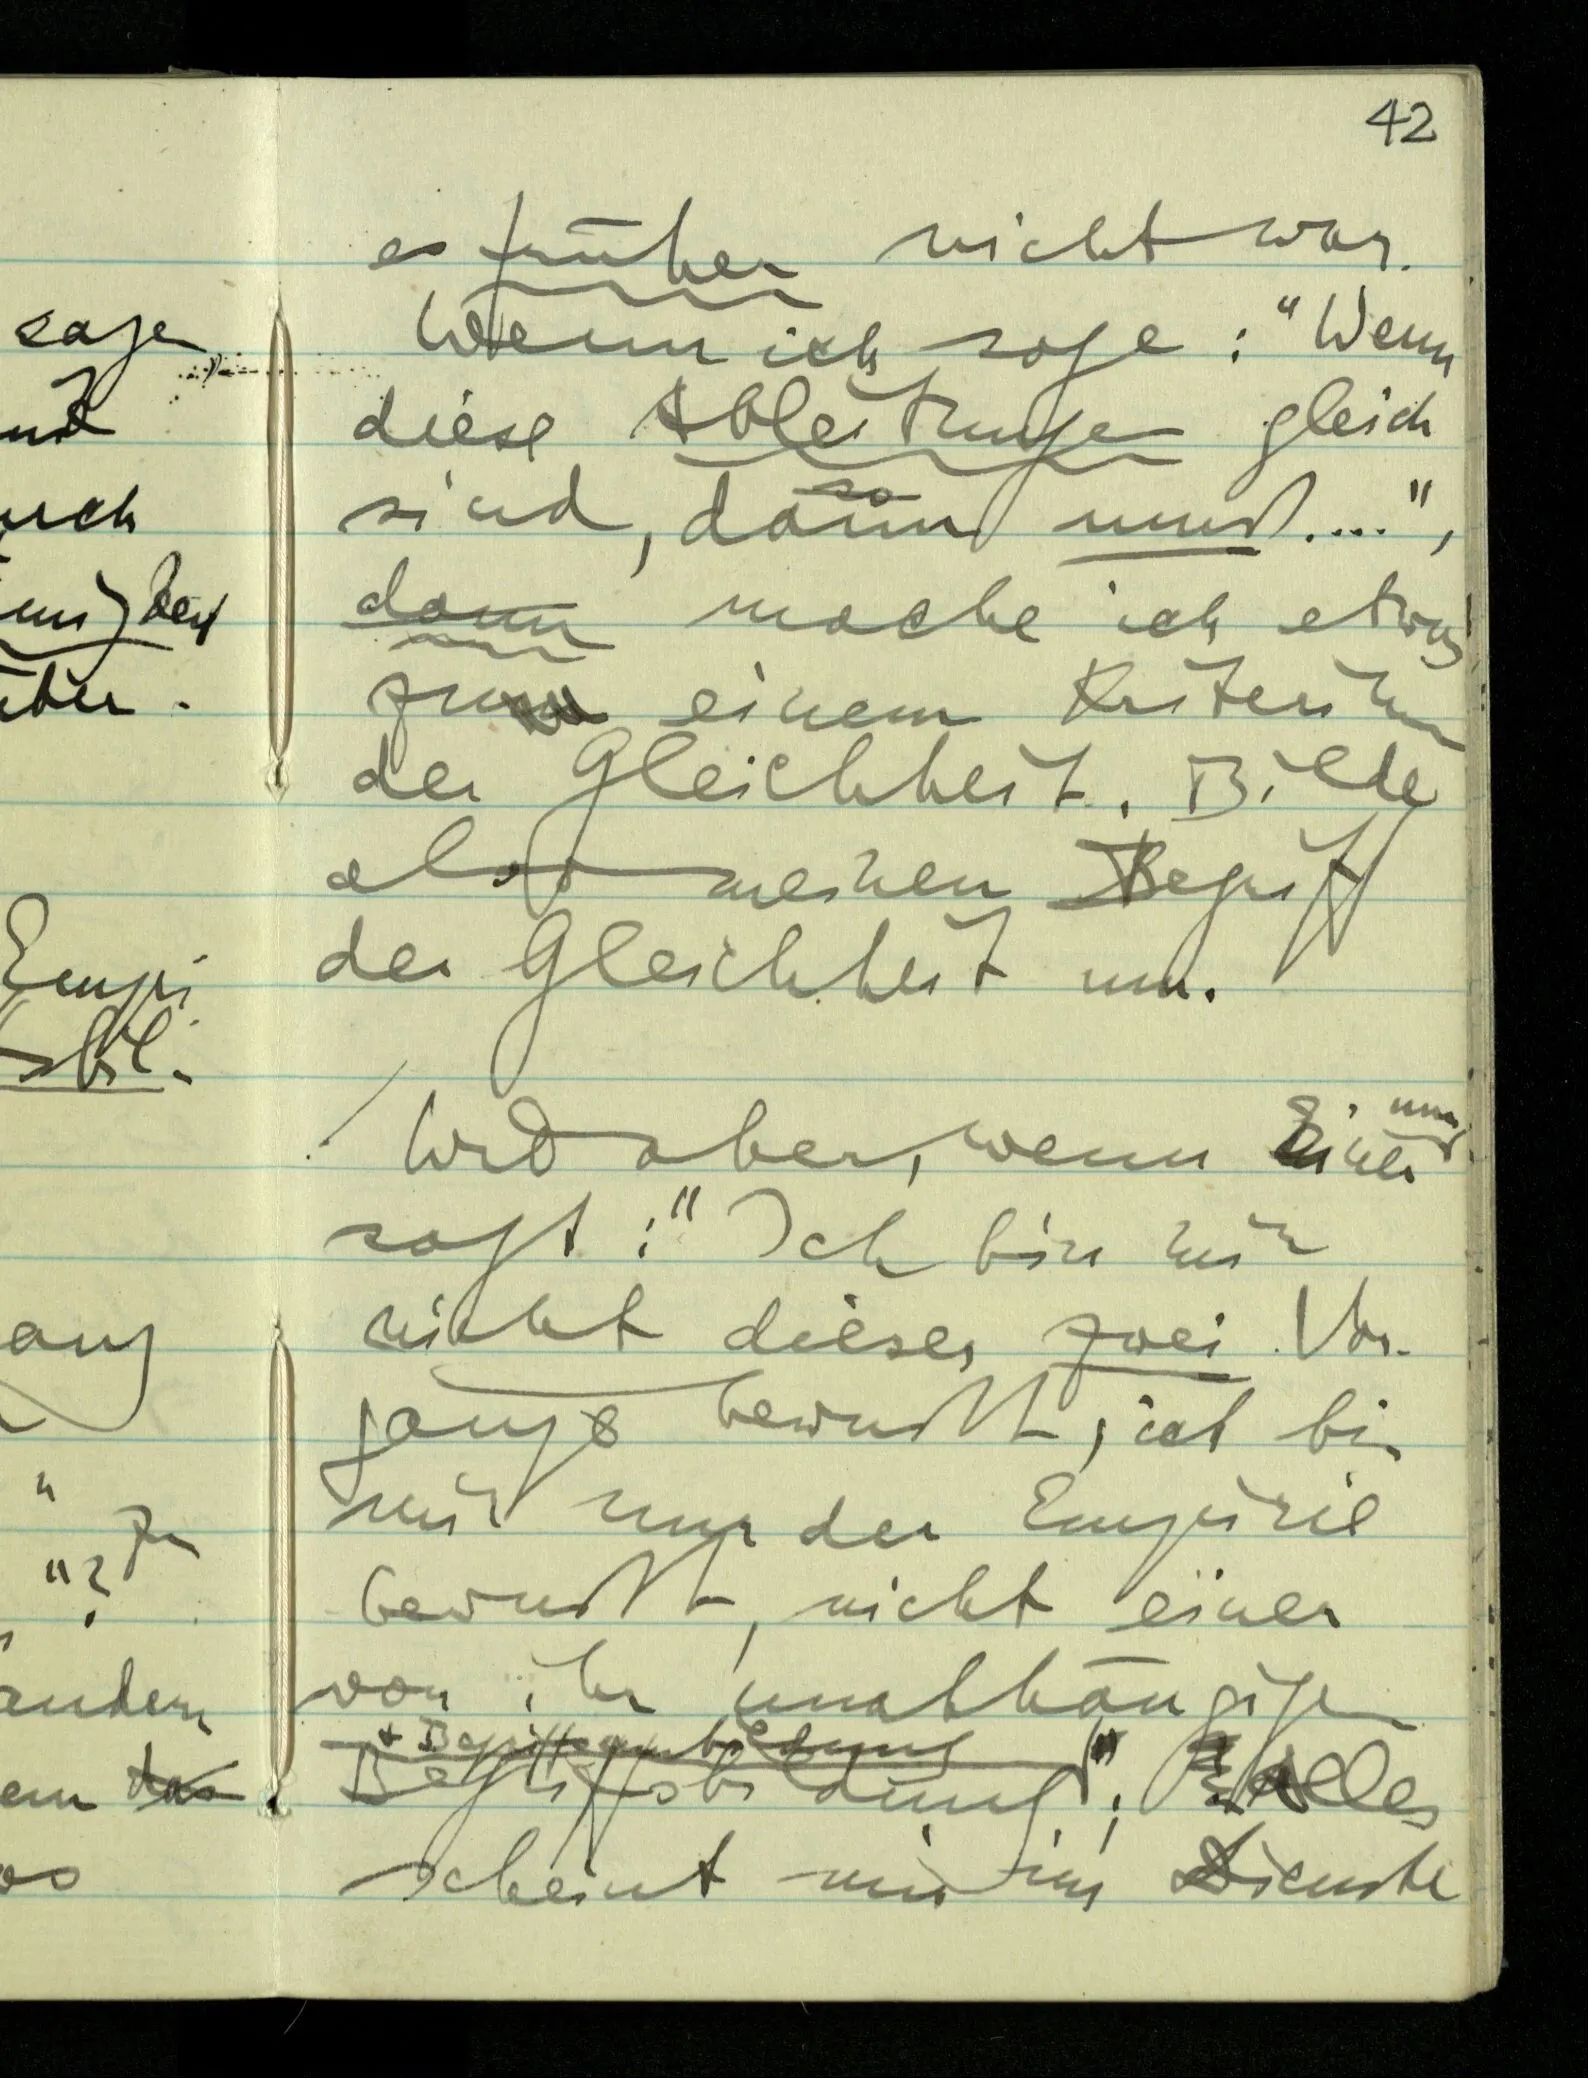 42
es früher nicht war.
Wenn ich sage: "Wenn
diese Ableitungen gleich
so
sind, dann muß....",
dann mache ich etwas
zu einem Kriterium
der Gleichheit. Bilde
also meinen Begriff
der Gleichheit um.
Wie aber, wenn Einer nun
sagt: "Ich bin mir
nicht dieser zwei Vor-
gänge bewußt, ich bin
mir nur der Empirie
bewußt, nicht einer
von ihr unabhängigen
+ Begriffsumbildung
Begriffsbildung"; Alles
scheint mir im Dienste
sage
auch
Empi
aus
zu
"?
andern
em das